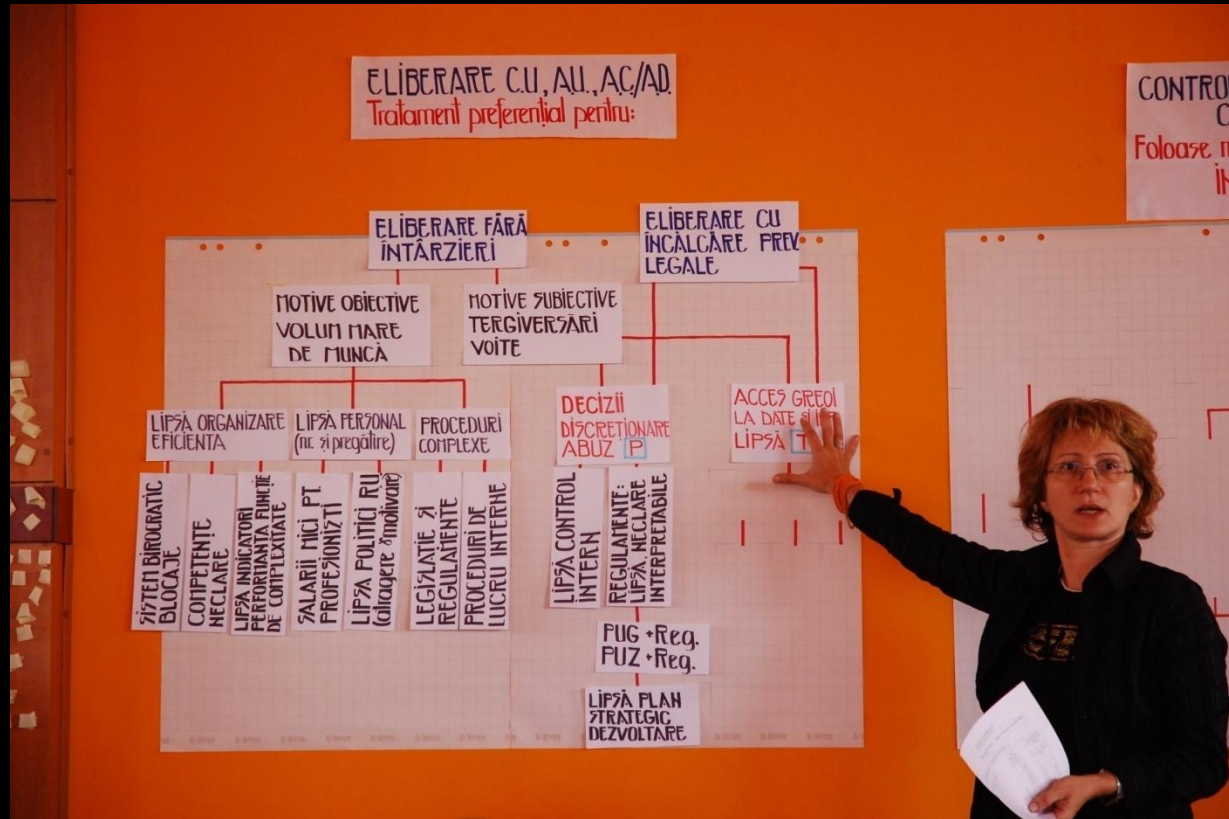 ELIBERARE C.U., A.U., A.C./A.D.
Tratament preferenţial pentru:
ELIBERARE FĂRĂ
ÎNTÂRZIERI
ELIBERARE CU
ÎNCĂLCĂRE PREV.
LEGALE
MOTIVE OBIECTIVE
VOLUM MARE
DE MUNCĂ
MOTIVE SUBIECTIVE
TERGIVERSĂRI
VOITE
LIPSĂ ORGANIZARE
EFICIENTA
LIPSĂ PERSONAL
(nr. şi pregătire)
PROCEDURI
COMPLEXE
DECIZII
DISCREŢIONARE
ABUZ P
ACCES GREOI
LA DATE ŞI
LIPSĂ T
SISTEM BIROCRATIC
BLOCAJE
COMPETENŢE
NECLARE
LIPSĂ INDICATORI
PERFORMANŢA FUNCŢIE
DE COMPLEXITATE
SALARII MICI PT.
PROFESIONIŞTI
LIPSA POLITICI RU
(atragere & motivare)
LEGISLAŢIE ŞI
REGULAMENTE
PROCEDURI DE
LUCRU INTERNE
LIPSĂ CONTROL
INTERN
REGULAMENTE:
LIPSĂ, NECLARE
INTERPRETABILE
PUG + Reg.
PUZ + Reg.
LIPSĂ PLAN
STRATEGIC
DEZVOLTARE
Foloase